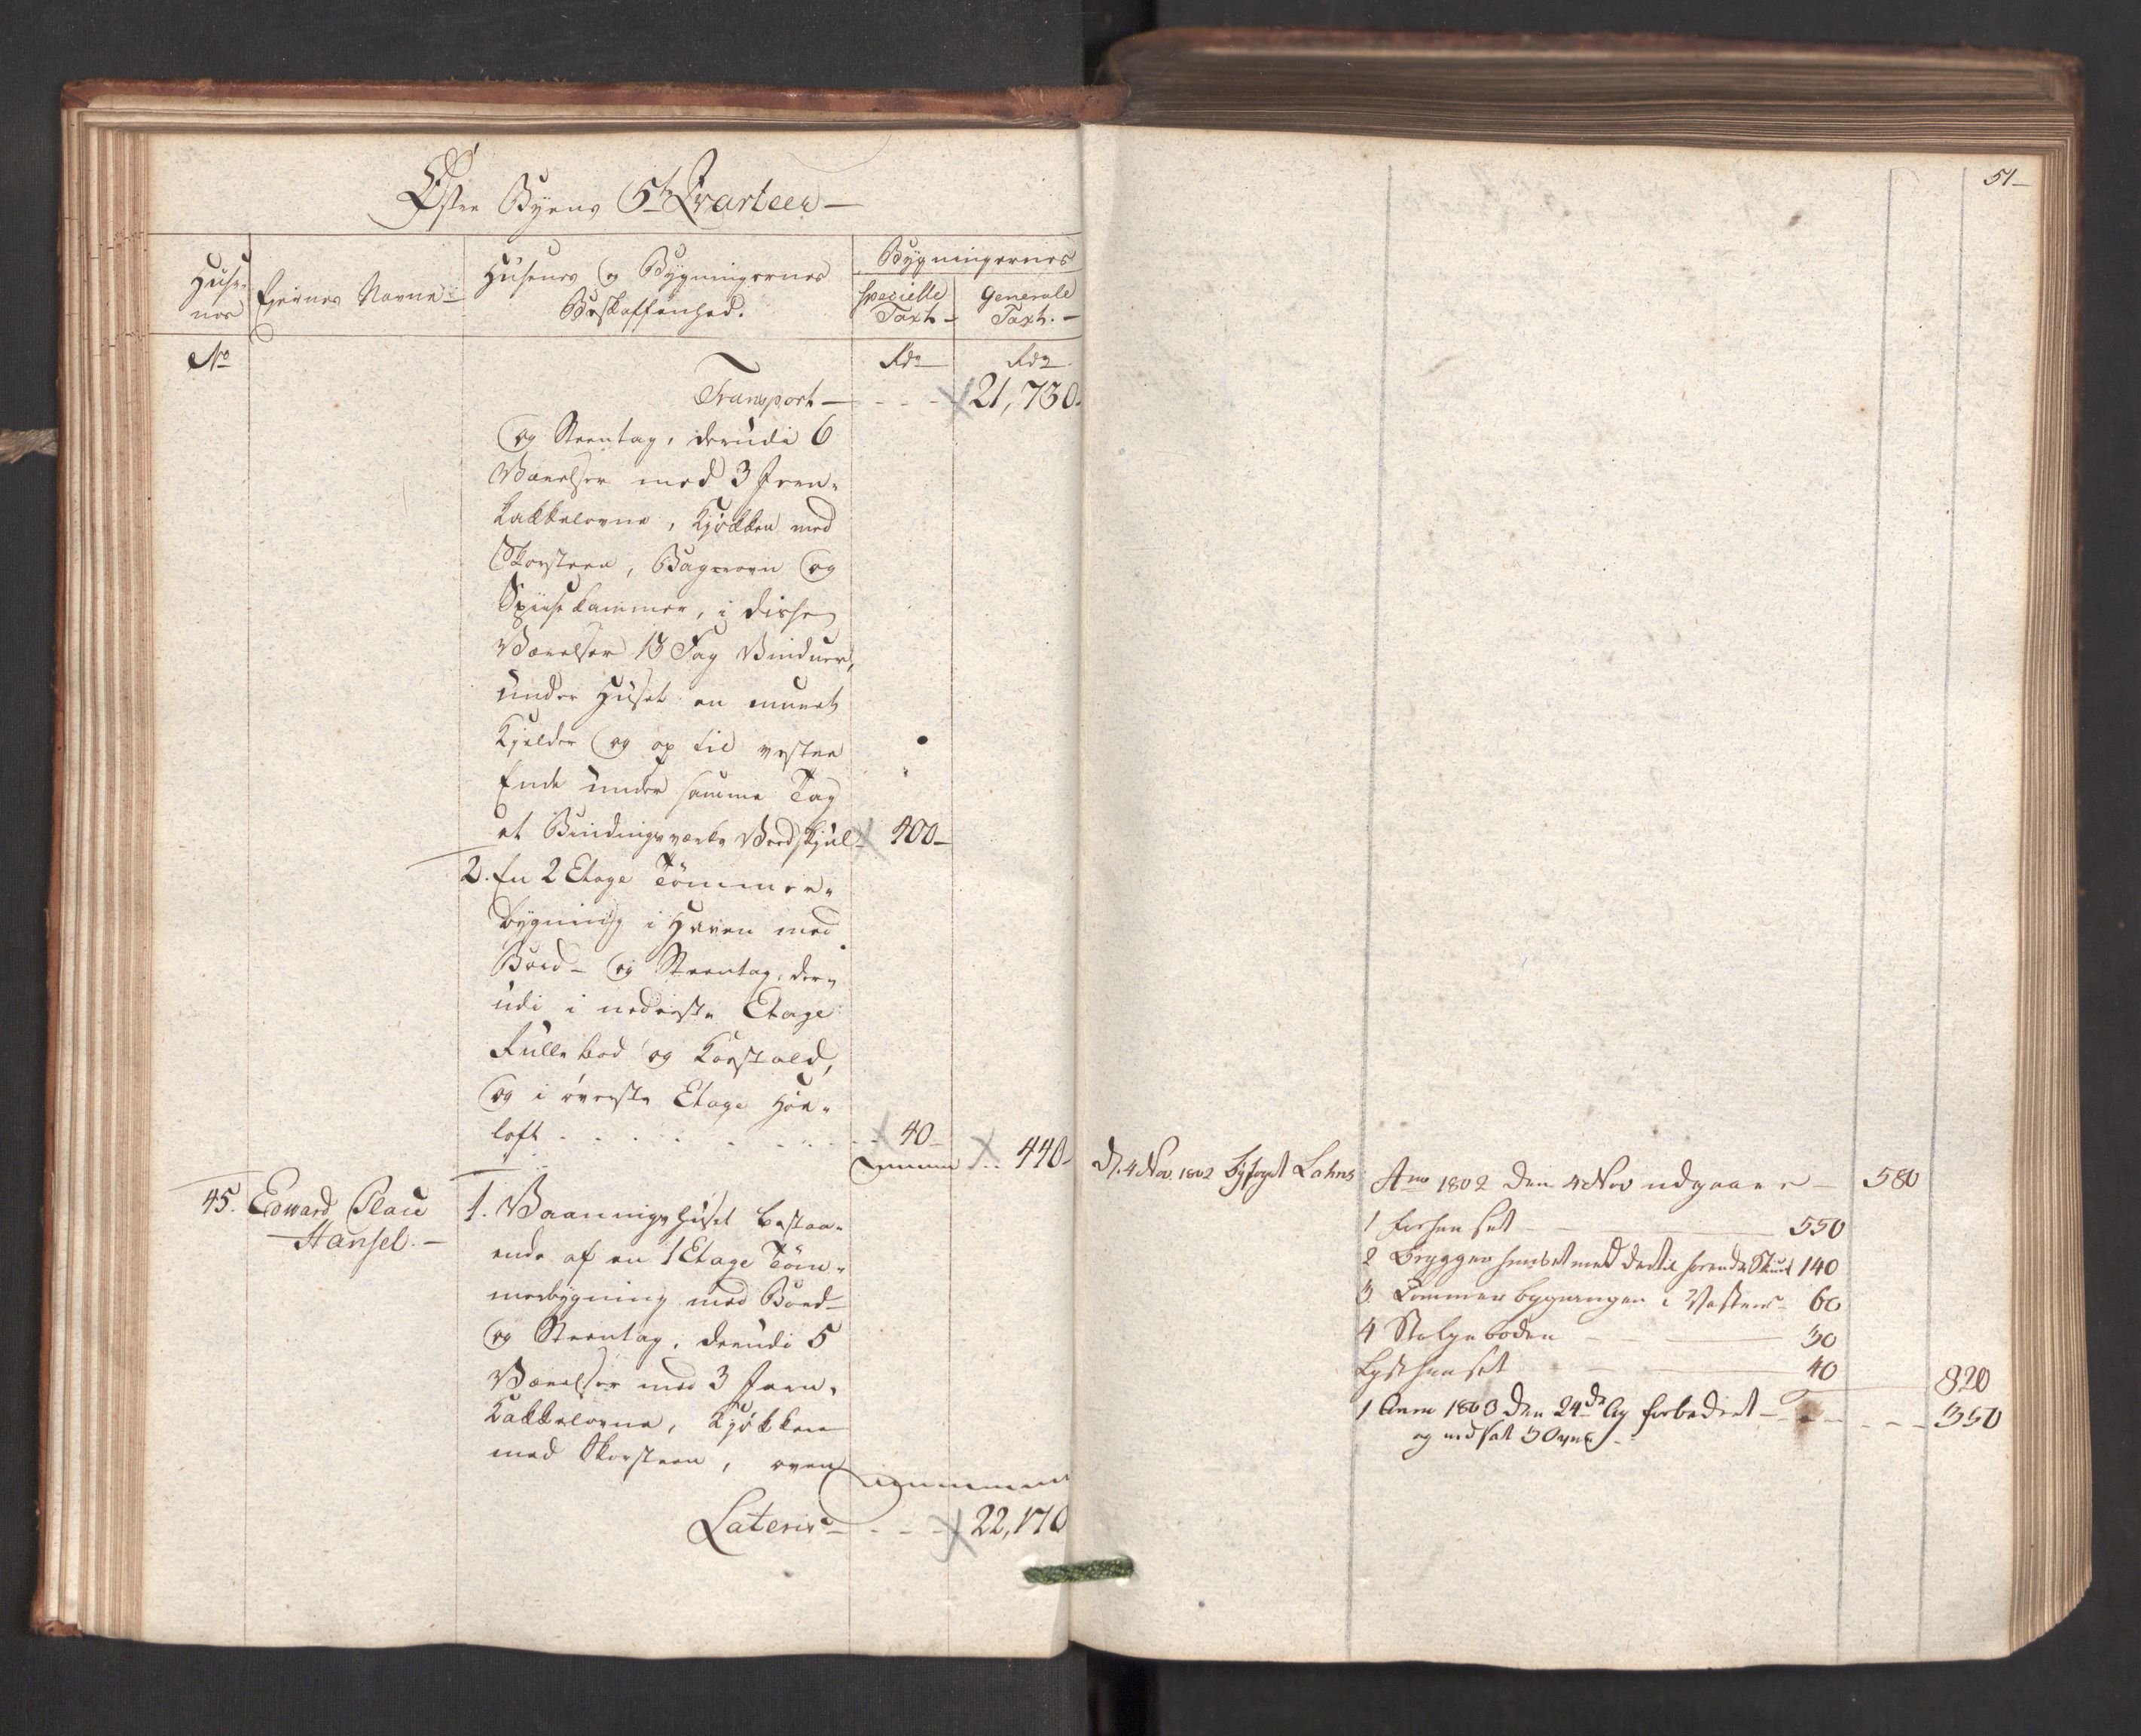 Øster Byens 5te Qvarteer
Huse-
nes
Ejernes Navne
Husenes og Bygningernes
Beskaffenhed.
Bygningernes
specielle
Taxt.
Generale
Taxt.
No
Rdr
Rdr
Transport 21,730
og Steentag, derudi 6
Værelser med 3 Jern-
kakkelovne, Kjøkken med
Skorsteen, Bagerovn og
Spiisekammer, i disse
Værelser 13 Fag Vinduer,
under Huset en muret
Kjelder og op til vestre
Ende under samme Tag
et Bindingsverks Vedskjul 400
2. En 2 Etage Tømmer-
bygning i Haven med
Bord- og Steentag, der-
udi i nederste Etage
Rullebod og Koestald,
og i øverste Etage Høe-
loft 40
440
45. Edward Clau
Hansel.
1. Vaaningshuset bestaa-
ende af en 1 Etage Tøm-
merbygning med Bord-
og Steentag, derudi 5
Værelser med 3 Jern-
Kakkelovne, Kjøkken
med Skorsteen, oven
Lateris 22,170
51
d. 4 Nov. 1802 Byfoget Lahns
Ano 1802 den 4 Nov udgaaer 580
1 forhuuset 550
2 Bryggerhuuset med dertil hørende Skuur 140
3 Tømmerbygningen i Vesten 60
4 Stolpeboden 30
Lysthuuset 40
820
1 Anno 1803 den 24de Ag forbedret 350
og indsat 3 Ovne